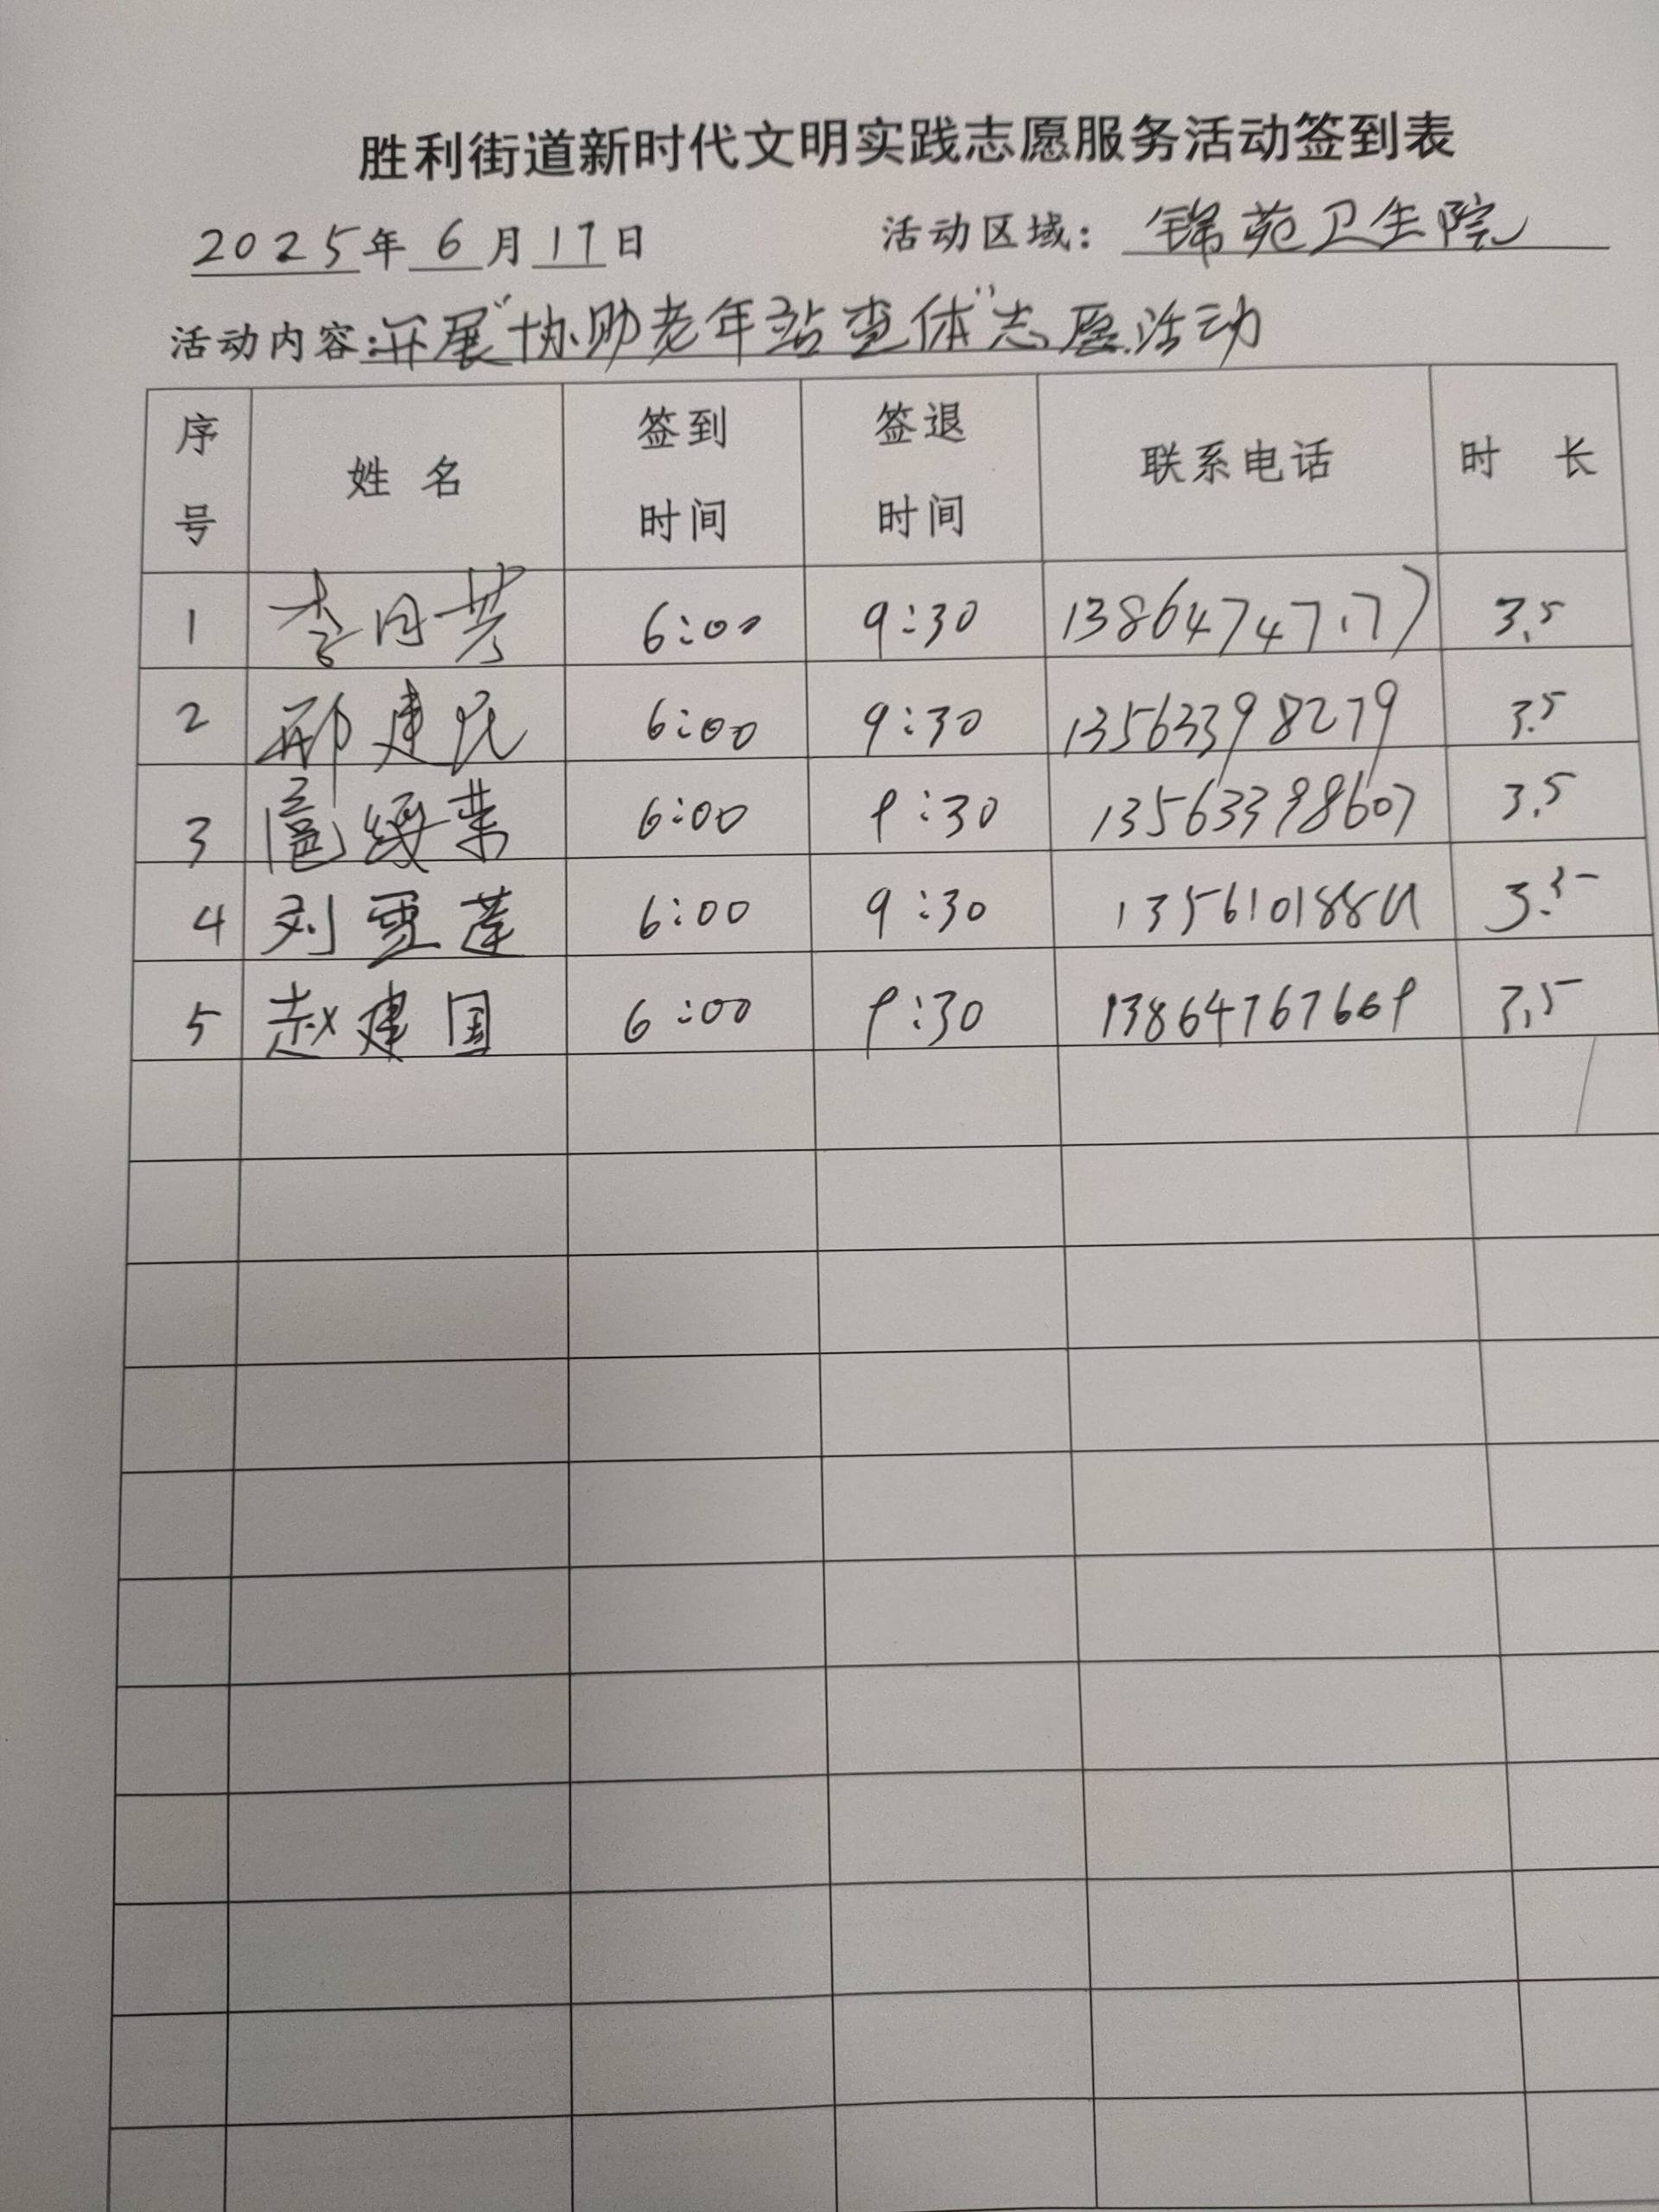 胜利街道新时代文明实践志愿服务活动签到表
2025年 6 月 17 日 活动区域：锦苑卫生院
活动内容：开展"协助老年站查体"志愿活动
序号 姓名 签到时间 签退时间 联系电话 时长
1 李月芳 6:00 9:30 3.5
2 邢建民 6:00 9:30 13563398279 3.5
3 荣 6:00 9:30 13563398607 3.5
4 刘雪莲 6:00 9:30 3.5
5 赵建国 6:00 9:30 13864767669 3.5